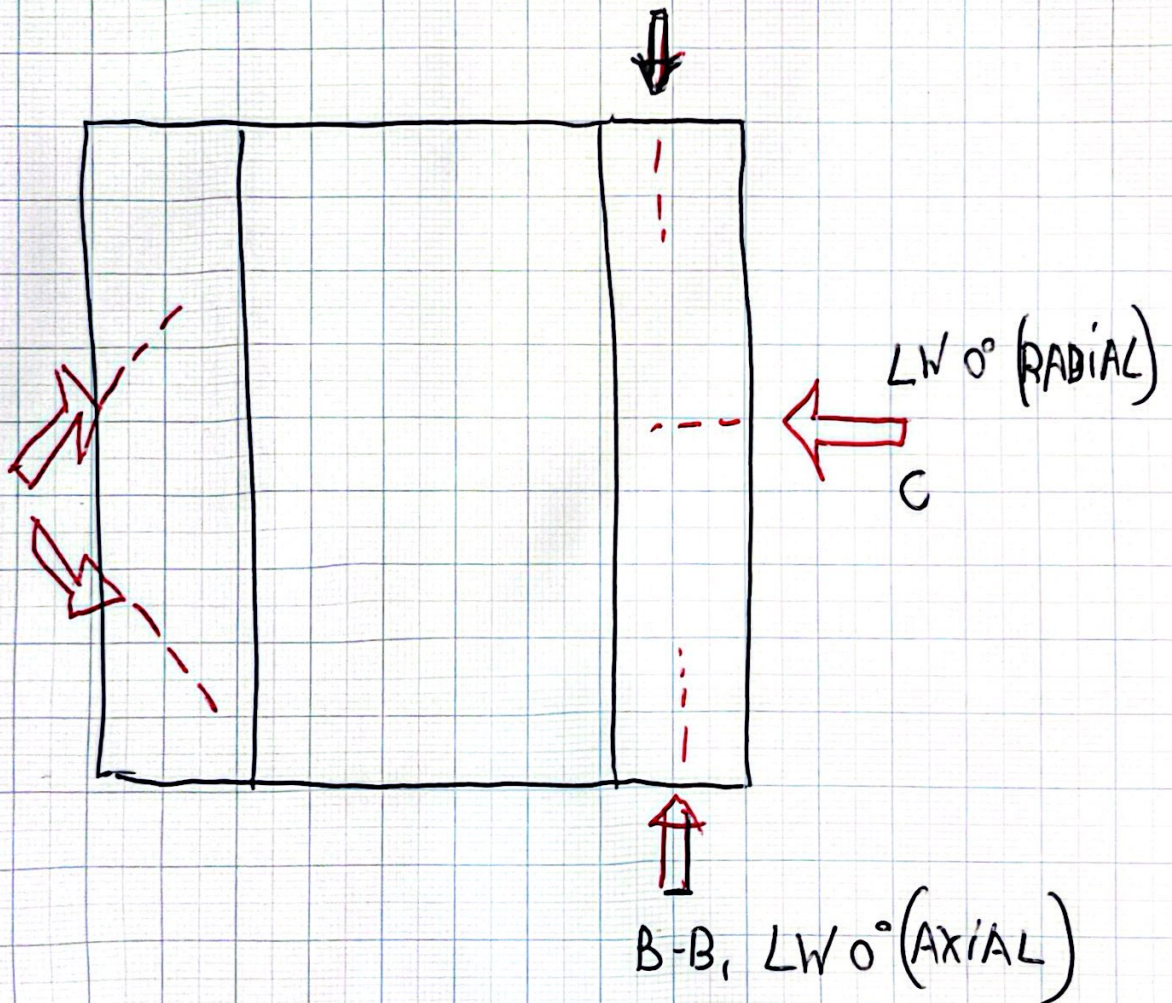 LW 0° (RADIAL)
C
B-B, LW 0° (AXIAL)